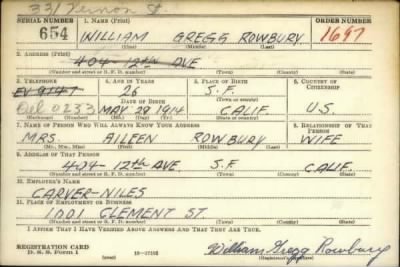 331 Vernon St.
SERIAL NUMBER 1. NAME (Print) ORDER NUMBER
654 WILLIAM GREGG ROWBURY 1697
(First) (Middle) (Last)
2. ADDRESS (Print)
404-12th AVE
(Number and street or R. F. D. number) (Town) (County) (State)
3. TELEPHONE 4. AGE IN YEARS 5. PLACE OF BIRTH 6. COUNTRY OF CITIZENSHIP
EV 9147 26 S.F.
DATE OF BIRTH (Town or county)
0233 MAY 29 1914 CALIF. U.S.
(Exchange) (Number) (Mo.) (Day) (Yr.) (State or country)
7. NAME OF PERSON WHO WILL ALWAYS KNOW YOUR ADDRESS 8. RELATIONSHIP OF THAT PERSON
MRS. AILEEN ROWBURY WIFE
(Mr., Mrs., Miss) (First) (Middle) (Last)
9. ADDRESS OF THAT PERSON
404-12th AVE. S.F. CALIF.
(Number and street or R. F. D. number) (Town) (County) (State)
10. EMPLOYER'S NAME
CARVER-NILES
11. PLACE OF EMPLOYMENT OR BUSINESS
1001 CLEMENT ST.
(Number and street or R. F. D. number) (Town) (County) (State)
I AFFIRM THAT I HAVE VERIFIED ABOVE ANSWERS AND THAT THEY ARE TRUE.
REGISTRATION CARD
D. S. S. FORM 1 William Gregg Rowbury
(Registrant's signature)